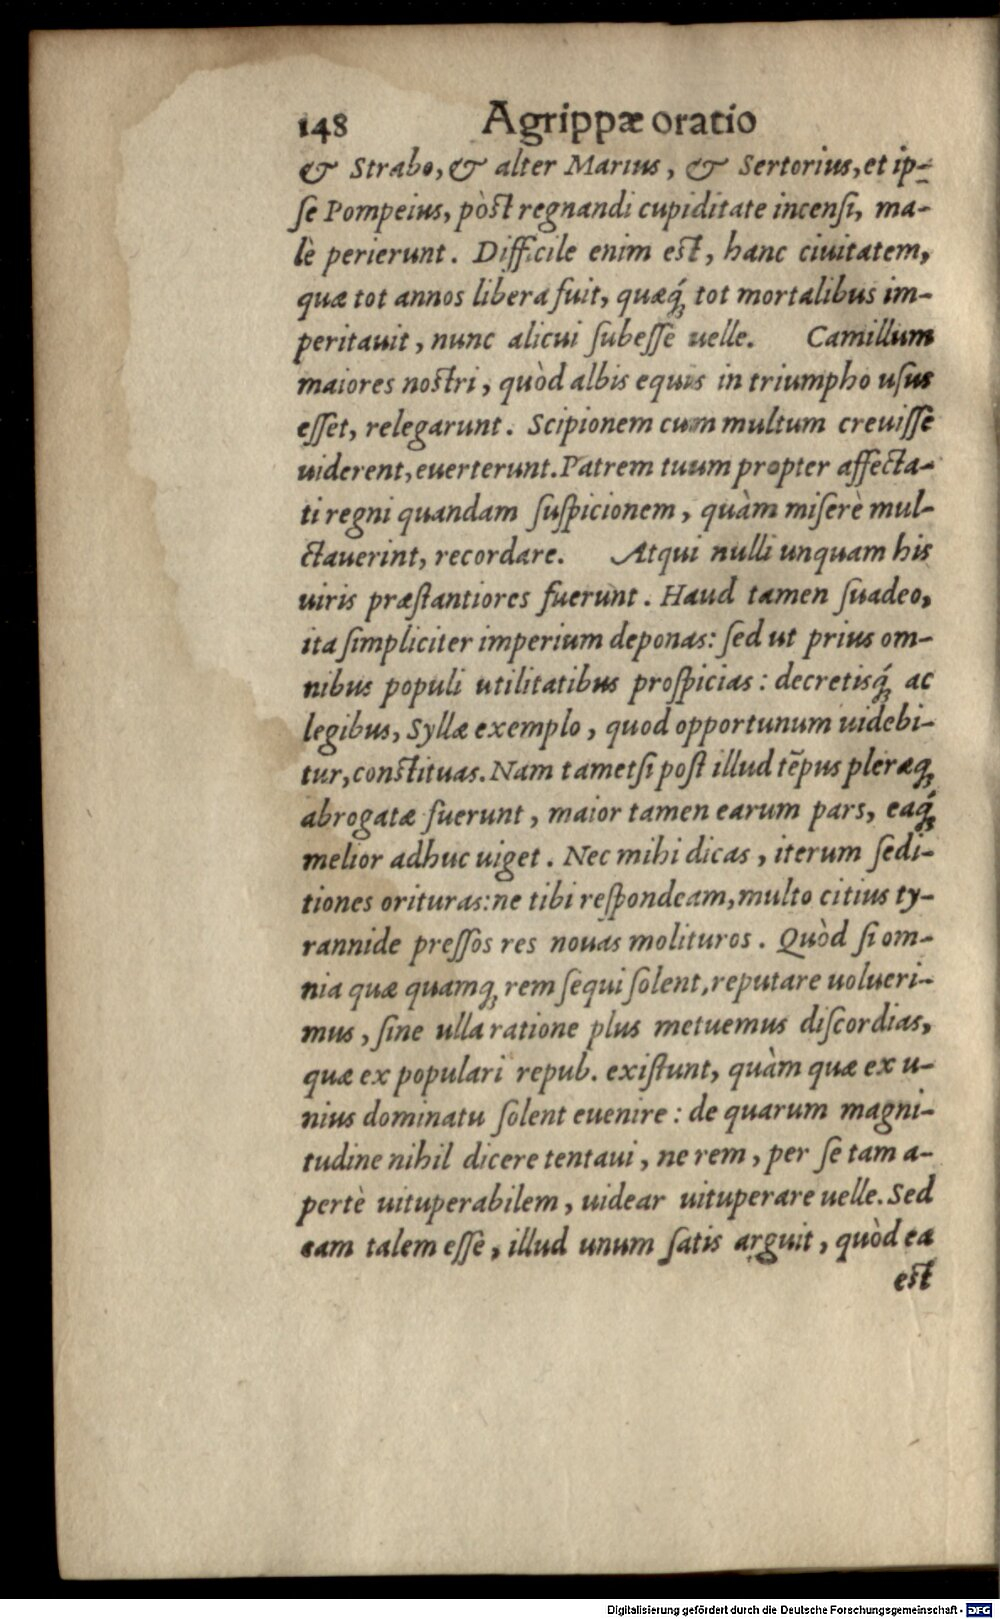 148 Agrippæ oratio
& Strabo, & alter Marius, & Sertorius, et ip-
ſe Pompeius, pòst regnandi cupiditate incenſi, ma-
lè perierunt. Difficile enim est, hanc ciuitatem,
quæ tot annos libera fuit, quæq́ꝫ tot mortalibus im-
peritauit, nunc alicui ſubeſſe uelle. Camillum
maiores nostri, quòd albis equis in triumpho uſus
eſſet, relegarunt. Scipionem cum multum creuiſſe
uiderent, euerterunt. Patrem tuum propter affecta-
ti regni quandam ſuſpicionem, quàm miſerè mul-
ctauerint, recordare. Atqui nulli unquam his
uiris præſtantiores fuerunt. Haud tamen ſuadeo,
ita ſimpliciter imperium deponas: ſed ut prius om-
nibus populi utilitatibus proſpicias: decretisq́ꝫ ac
legibus, Syllæ exemplo, quod opportunum uidebi-
tur, constituas. Nam tametſi poſt illud tẽpus pleræqꝫ
abrogatæ fuerunt, maior tamen earum pars, eaq́ꝫ
melior adhuc uiget. Nec mihi dicas, iterum ſedi-
tiones orituras: ne tibi reſpondeam, multo citius ty-
rannide preſſos res nouas molituros. Quòd ſi om-
nia quæ quamqꝫ rem ſequi ſolent, reputare uolueri-
mus, ſine ulla ratione plus metuemus diſcordias,
quæ ex populari repub. exiſtunt, quàm quæ ex u-
nius dominatu ſolent euenire: de quarum magni-
tudine nihil dicere tentaui, ne rem, per ſe tam a-
pertè uituperabilem, uidear uituperare uelle. Sed
eam talem eſſe, illud unum ſatis arguit, quòd ea
est
Digitalisierung gefördert durch die Deutsche Forschungsgemeinschaft - DFG